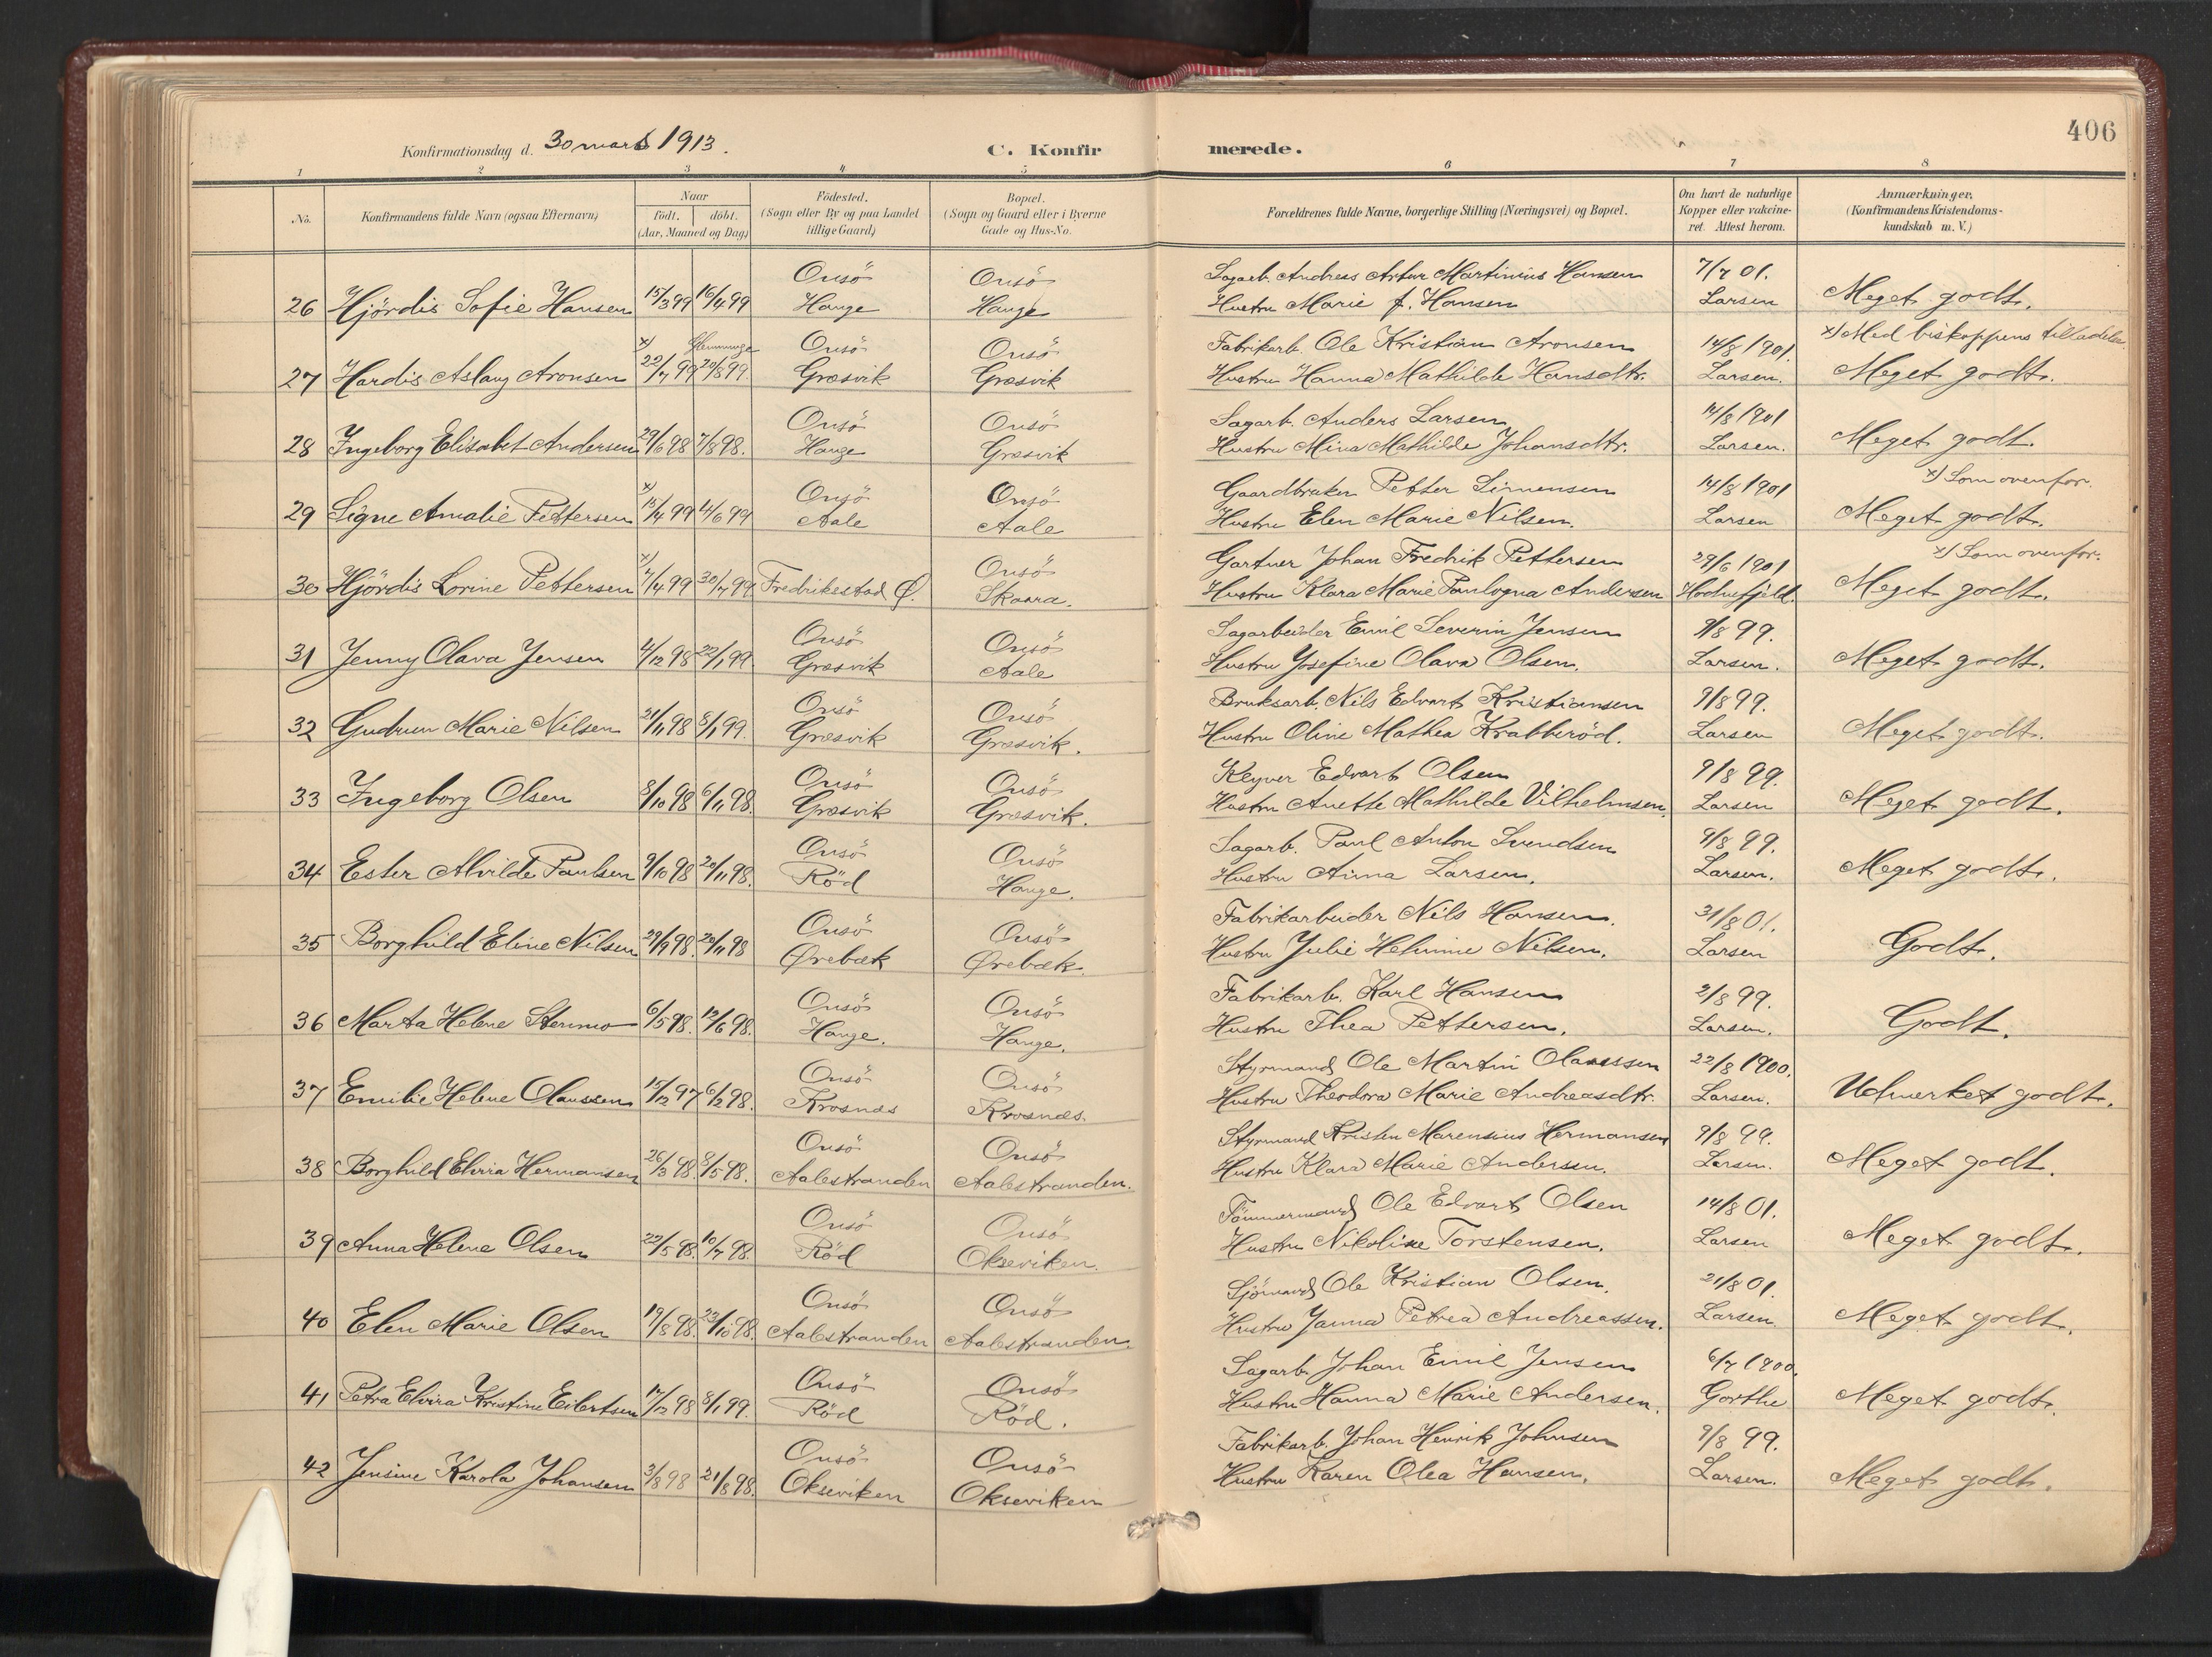 Konfirmationsdag d. 30 mars 1913.
C. Konfirmerede.
406
1 2 3 4 5 6 7 8
No.
Konfirmandens fulde Navn (ogsaa Efternavn)
Naar
födt. döbt.
(Aar, Maaned og Dag)
Födested.
(Sogn eller By og paa Landet
tillige Gaard)
Bopæl.
(Sogn og Gaard eller i Byerne
Gade og Hus-No.
Forældrenes fulde Navne, borgerlige Stilling (Næringsvei) og Bopæl.
Om havt de naturlige
Kopper eller vakcine-
ret. Attest herom.
Anmærkninger.
(Konfirmandens Kristendoms-
kundskab m. V.)
Onsö Onsö Sagarb. Andreas Artur Martinius Hansen 7/7 01.
26 Hjördis Sofie Hansen 15/3 99 16/4 99 Hauge Hauge Hustru Marie f. Hansen Larsen Meget godt.
x) Glemminge Onsö Onsö Fabrikarb. Ole Kristian Aronsen 14/8 1901. x) Med biskoppens tilladelse.
27 Hardis Aslaug Aronsen 22/7 99 20/8 99. Græsvik Græsvik Hustru Hanna Mathilde Hansdtr. Larsen. Meget godt.
Onsö Onsö Sagarb. Anders Larsen 14/8 1901
28 Ingeborg Elisabet Andersen 29/6 98 7/8 98. Hauge Græsvik Hustru Mina Mathilde Johansdtr. Larsen. Meget godt.
x) Onsö Onsö Gaardbruker Petter Simensen 14/8 1901 x) Som ovenfor.
29 Signe Amalie Pettersen 15/4 99 4/6 99 Aale Aale Hustru Elen Marie Nilsen. Larsen Meget godt.
x) Onsö Gartner Johan Fredrik Pettersen 29/6 1901 x) Som ovenfor.
30 Hjördis Lorine Pettersen 7/4 99 30/7 99 Fredrikestad Ø. Skaara. Hustru Klara Marie Andersen Meget godt.
Onsö Onsö Sagarbeider Emil Severin Jensen 9/8 99.
31 Jenny Olava Jensen 4/12 98 22/1 99. Græsvik Aale Hustru Josefine Olava Olsen. Larsen. Meget godt.
Onsö Onsö Bruksarb. Nils Edvart Kristiansen 9/8 99.
32 Gudrun Marie Nilsen 21/11 98 8/1 99. Græsvik Græsvik. Hustru Oline Mathea Krabberöd. Larsen Meget godt.
Onsö Onsö Edvart Olsen 9/8 99.
33 Ingeborg Olsen 8/10 98 6/11 98. Græsvik Græsvik. Hustru Anette Mathilde Vilhelmsen. Larsen Meget godt.
Onsö Onsö Sagarb. Paul Anton Svendsen 9/8 99.
34 Ester Alvilde Paulsen 9/10 98 20/11 98. Röd Hauge. Hustru Anna Larsen. Larsen. Meget godt.
Onsö Onsö Fabrikarbeider Nils Hansen. 31/8 01.
35 Borghild Eline Nilsen 29/9 98. 20/11 98 Ørebæk Ørebæk. Hustru Julie Helmine Nilsen. Larsen Godt.
Onsö Onsö Fabrikarb. Karl Hansen 2/8 99.
36 Marta Helene Stenmo 6/5 98. 12/6 98. Hauge. Hauge. Hustru Thea Pettersen. Larsen. Godt.
Onsö Onsö Styrmand Ole Martin Olaussen 22/8 1900.
37 Emilie Helene Olaussen 15/12 97 6/2 98. Krosnæs Krosnæs. Hustru Theodora Marie Andreasdtr. Larsen. Udmerket godt.
Onsö Onsö Styrmand Kristen Marensius Hermansen 9/8 99.
38 Borghild Elvira Hermansen 26/3 98. 8/5 98. Aalestranden Aalestranden. Hustru Klara Marie Andersen. Larsen. Meget godt.
Onsö Onsö Tömmermand Ole Edvart Olsen 14/8 01.
39 Anna Helene Olsen 22/5 98. 10/7 98. Röd Okseviken. Hustru Nikoline Torstensen. Larsen Meget godt.
Onsö Onsö Sjömand Ole Kristian Olsen. 21/8 01.
40 Elen Marie Olsen 19/8 98. 23/10 98. Aalestranden Aalestranden. Hustru Janna Petrea Andreassen. Larsen. Meget godt.
Onsö Onsö Sagarb. Johan Emil Jensen 6/7 1900.
41 Petra Elvira Kristine Eilertsen 17/12 98 8/1 99. Röd Röd. Hustru Hanna Marie Andersen. Gorthe Meget godt.
Onsö Onsö Fabrikarb. Johan Henrik Johnsen 9/8 99.
42 Jensine Karola Johansen 3/8 98 21/8 98. Okseviken Okseviken Hustru Karen Olea Hansen. Larsen. Meget godt.